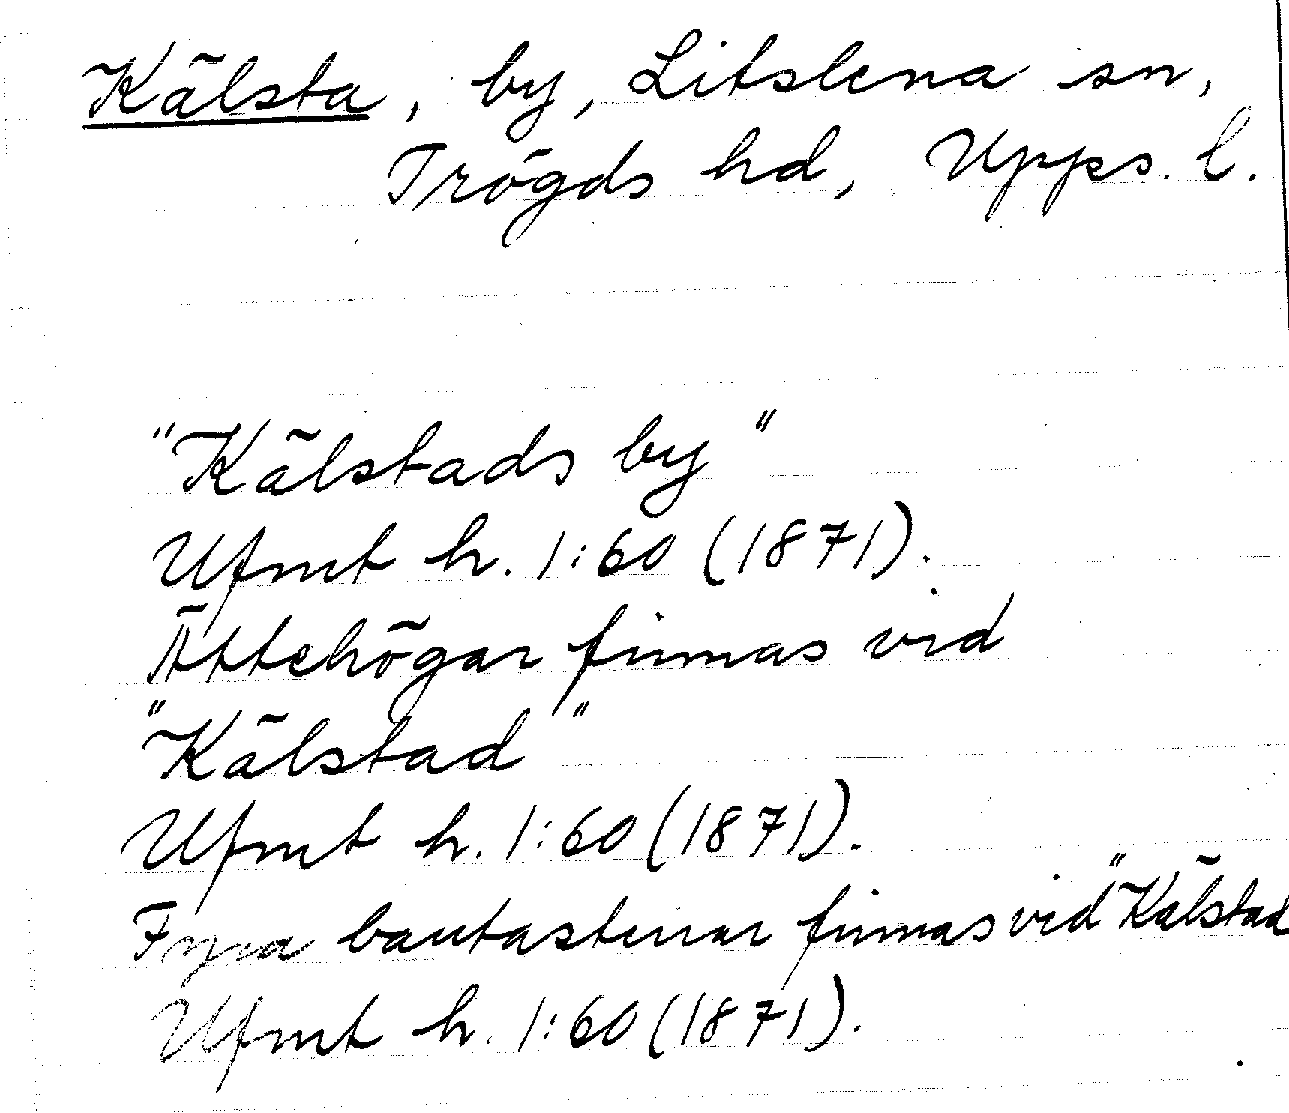 Kälsta, by, Litslena sn,
Trögds hd, Upps. l.
"Kälstads by"
Ufmt h. 1:60 (1871).
Ättehögar finnas vid
"Kälstad"
Ufmt h. 1:60 (1871).
Fyra bautastenar finnas vid "Kälstad
Ufmt h. 1:60 (1871).